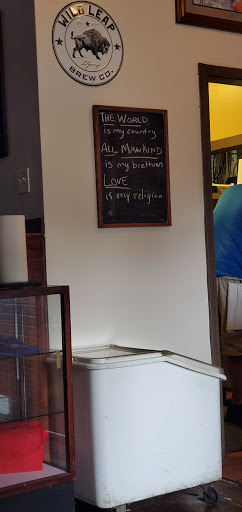 WILD LEAP
BREW CO.
THE WORLD
is my country
ALL MANKIND
is my brethren
LOVE
is my religion